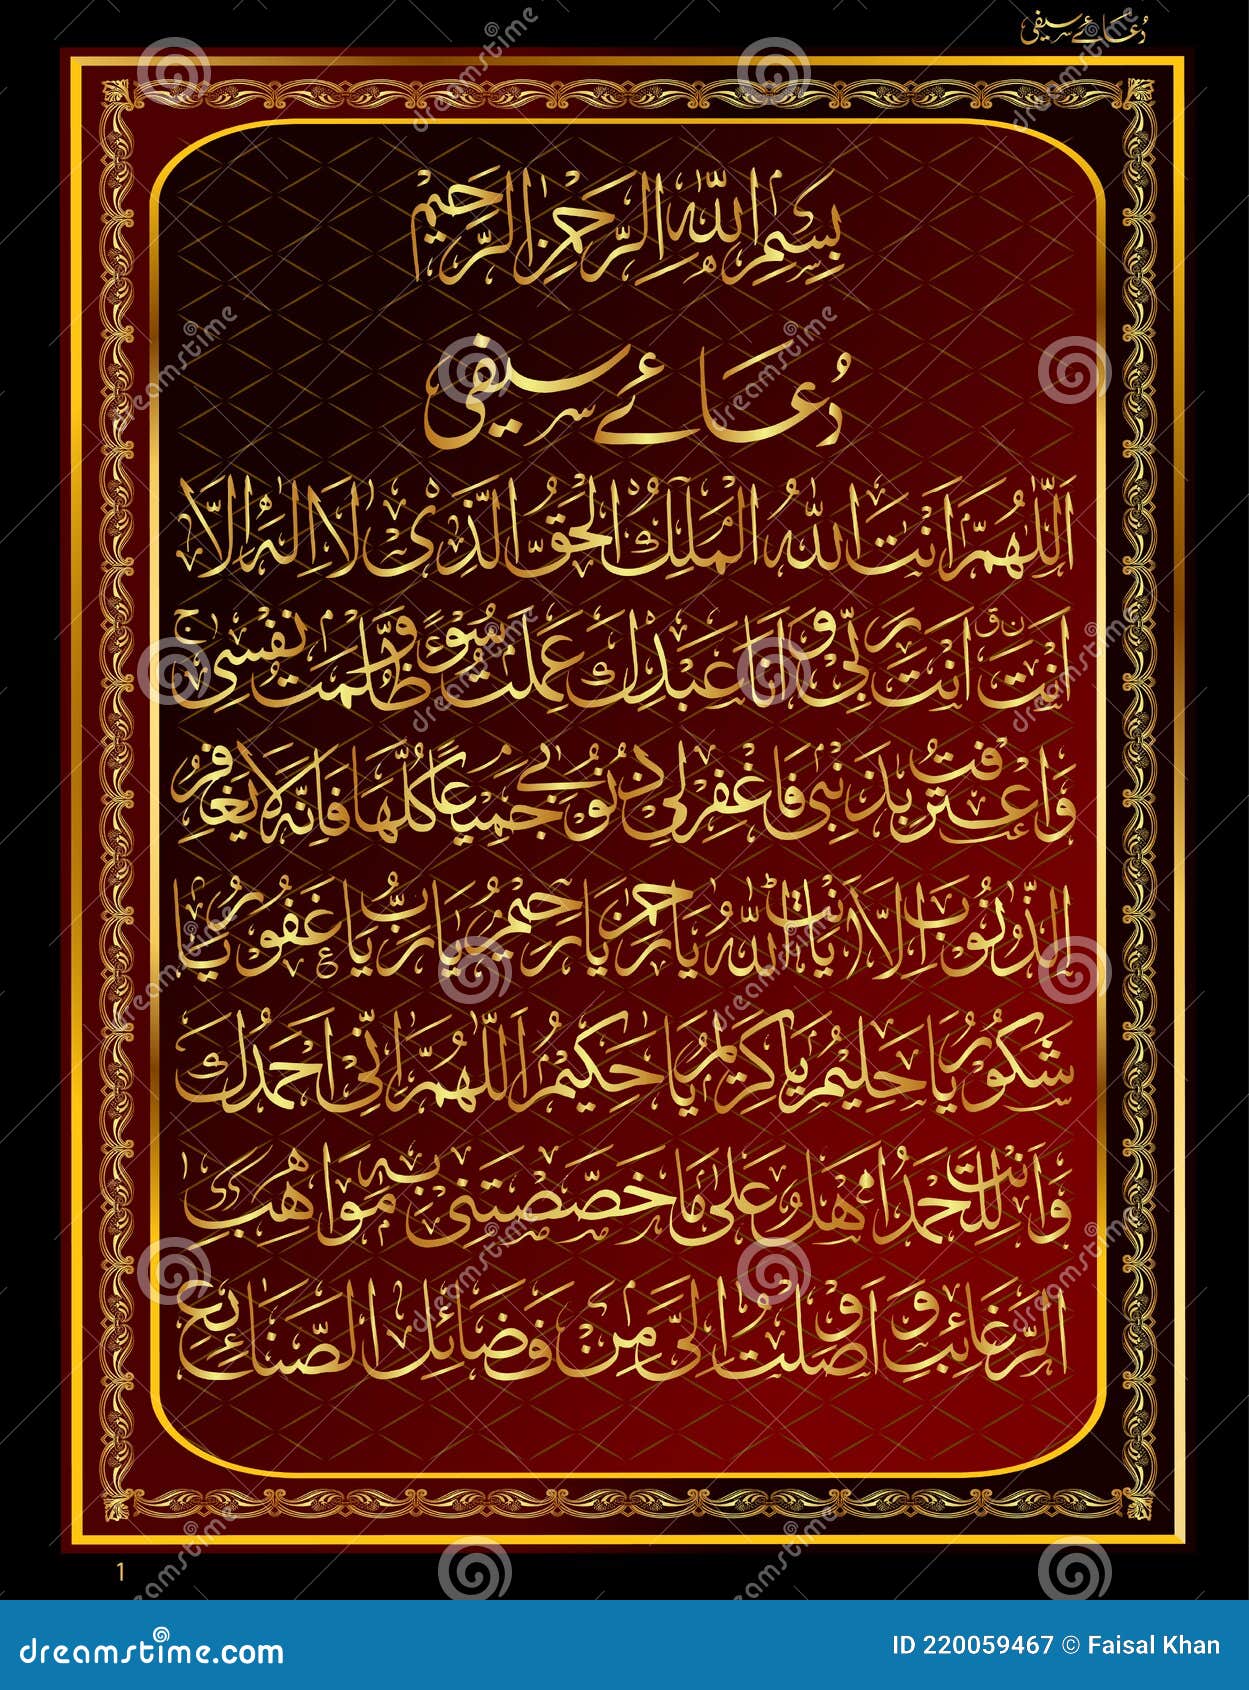 دُعَائے سیفی
بِسْمِ اللّٰهِ الرَّحْمٰنِ الرَّحِيْمِ
دُعَائے سیفی
اَللّٰهُمَّ اَنْتَ اللّٰهُ الْمَلِكُ الْحَقُّ الَّذِىْ لَا اِلٰهَ اِلَّا
اَنْتَ اَنْتَ رَبِّىْ وَاَنَا عَبْدُكَ عَمِلْتُ سُوْٓءً وَّظَلَمْتُ نَفْسِىْ
وَاعْتَرَفْتُ بِذَنْبِىْ فَاغْفِرْلِىْ ذُنُوْبِىْ جَمِيْعًا كُلَّهَا فَاِنَّهٗ لَا يَغْفِرُ
الذُّنُوْبَ اِلَّا (يَا اَنْتَ) يَا اَللّٰهُ يَا رَحْمٰنُ يَا رَحِيْمُ يَا رَبُّ يَا غَفُوْرُ يَا
شَكُوْرُ يَا حَلِيْمُ يَا كَرِيْمُ يَا حَكِيْمُ اَللّٰهُمَّ اِنِّىْ اَحْمَدُكَ
وَاَنْتَ لِلْحَمْدِ اَهْلٌ عَلٰى مَا خَصَّصْتَنِىْ بِهٖ مِنْ مَوَاهِبِ
الرَّغَائِبِ وَ وَاَوْصَلْتَ اِلَىَّ مِنْ فَضَائِلِ الصَّنَائِعِ
1
dreamstime.com
ID 220059467 © Faisal Khan